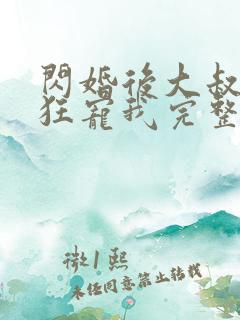 閃婚後大叔
狂寵我完整
微1熙
未經同意禁止轉載